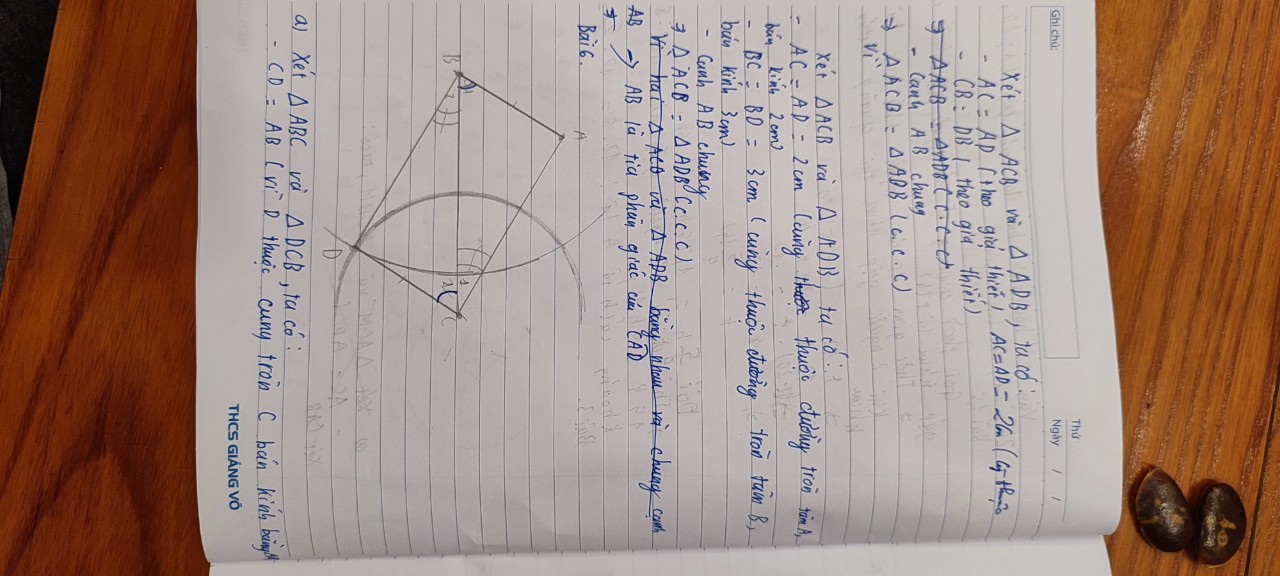 Ghi chú:
Thứ
Ngày / /
Xét Δ ACB và Δ ADB, ta có:
- AC = AD (theo giả thiết, AC = AD = 2cm
- CB = DB (theo giả thiết)
⇒ Δ ACB = Δ ADB (c.c.c)
- Cạnh AB chung
⇒ Δ ACB = Δ ADB (c.c.c)
Vì
Xét Δ ACB và Δ ADB, ta có:
- AC = AD = 2cm (cùng thuộc đường tròn tâm A,
bán kính 2cm)
- BC = BD = 3cm (cùng thuộc đường tròn tâm B,
bán kính 3cm)
- Cạnh AB chung
⇒ Δ ACB = Δ ADB (c.c.c)
Vì hai Δ ACB và Δ ADB bằng nhau và chung cạnh
AB → AB là tia phân giác của CAD
Bài 6.
A
B
1
2
C
D
a) Xét Δ ABC và Δ DCB, ta có:
- CD = AB (vì D thuộc cung tròn C bán kính bằng
THCS GIẢNG VÕ